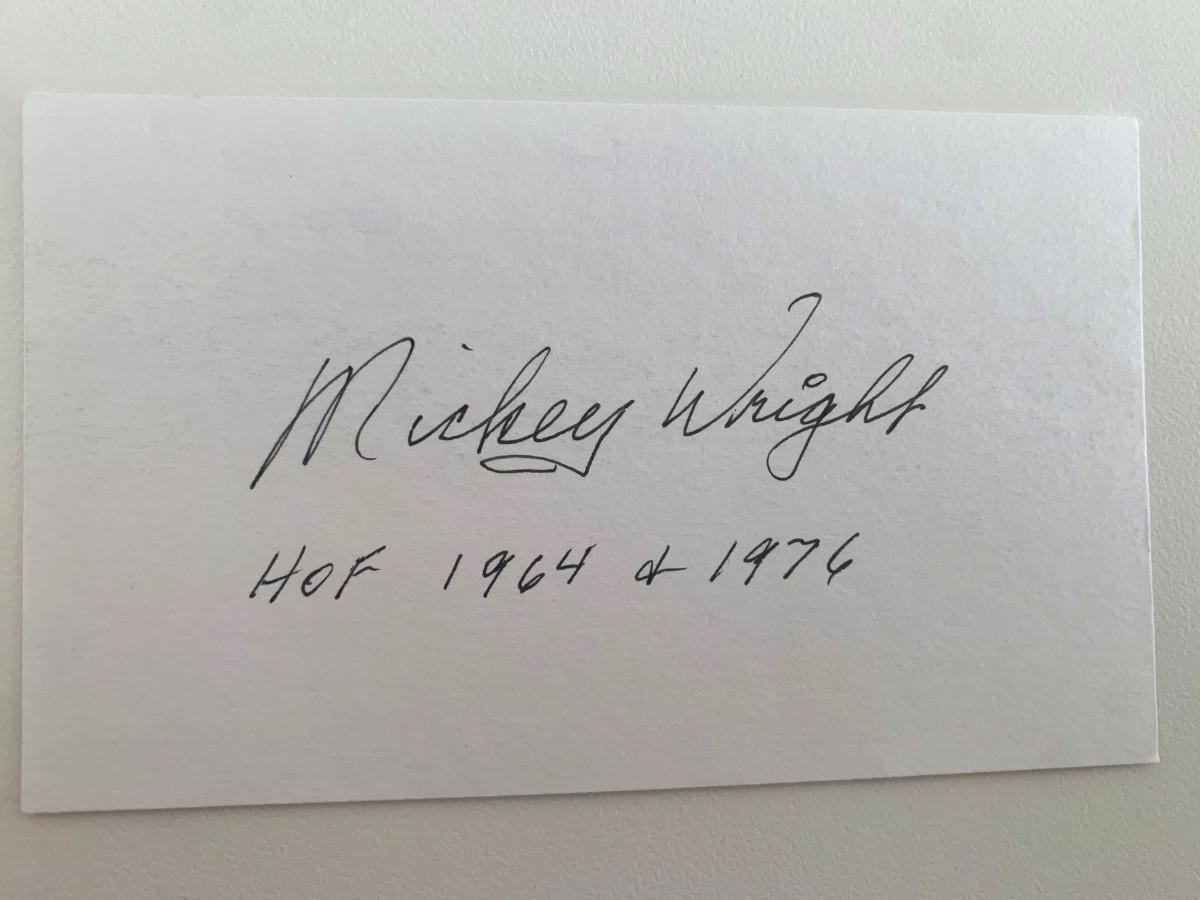 Mickey Wright
HOF 1964 & 1976